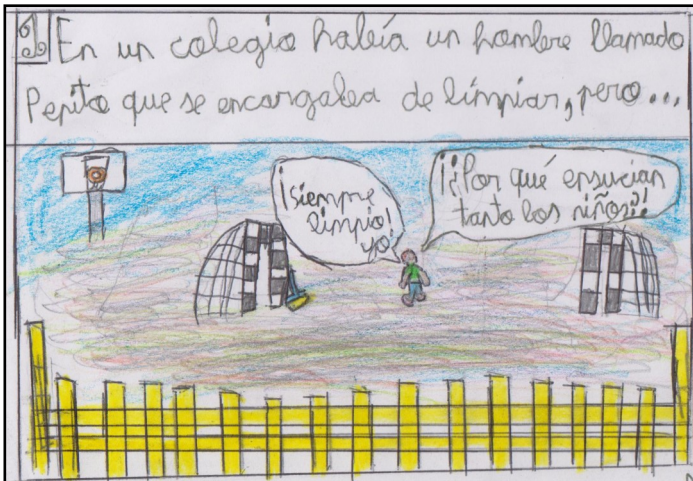 1 En un colegio había un hombre llamado
Pepito que se encargaba de limpiar, pero...
¡Siempre
limpio!
yo!
¡¿Por qué ensucian
tanto los niños?!